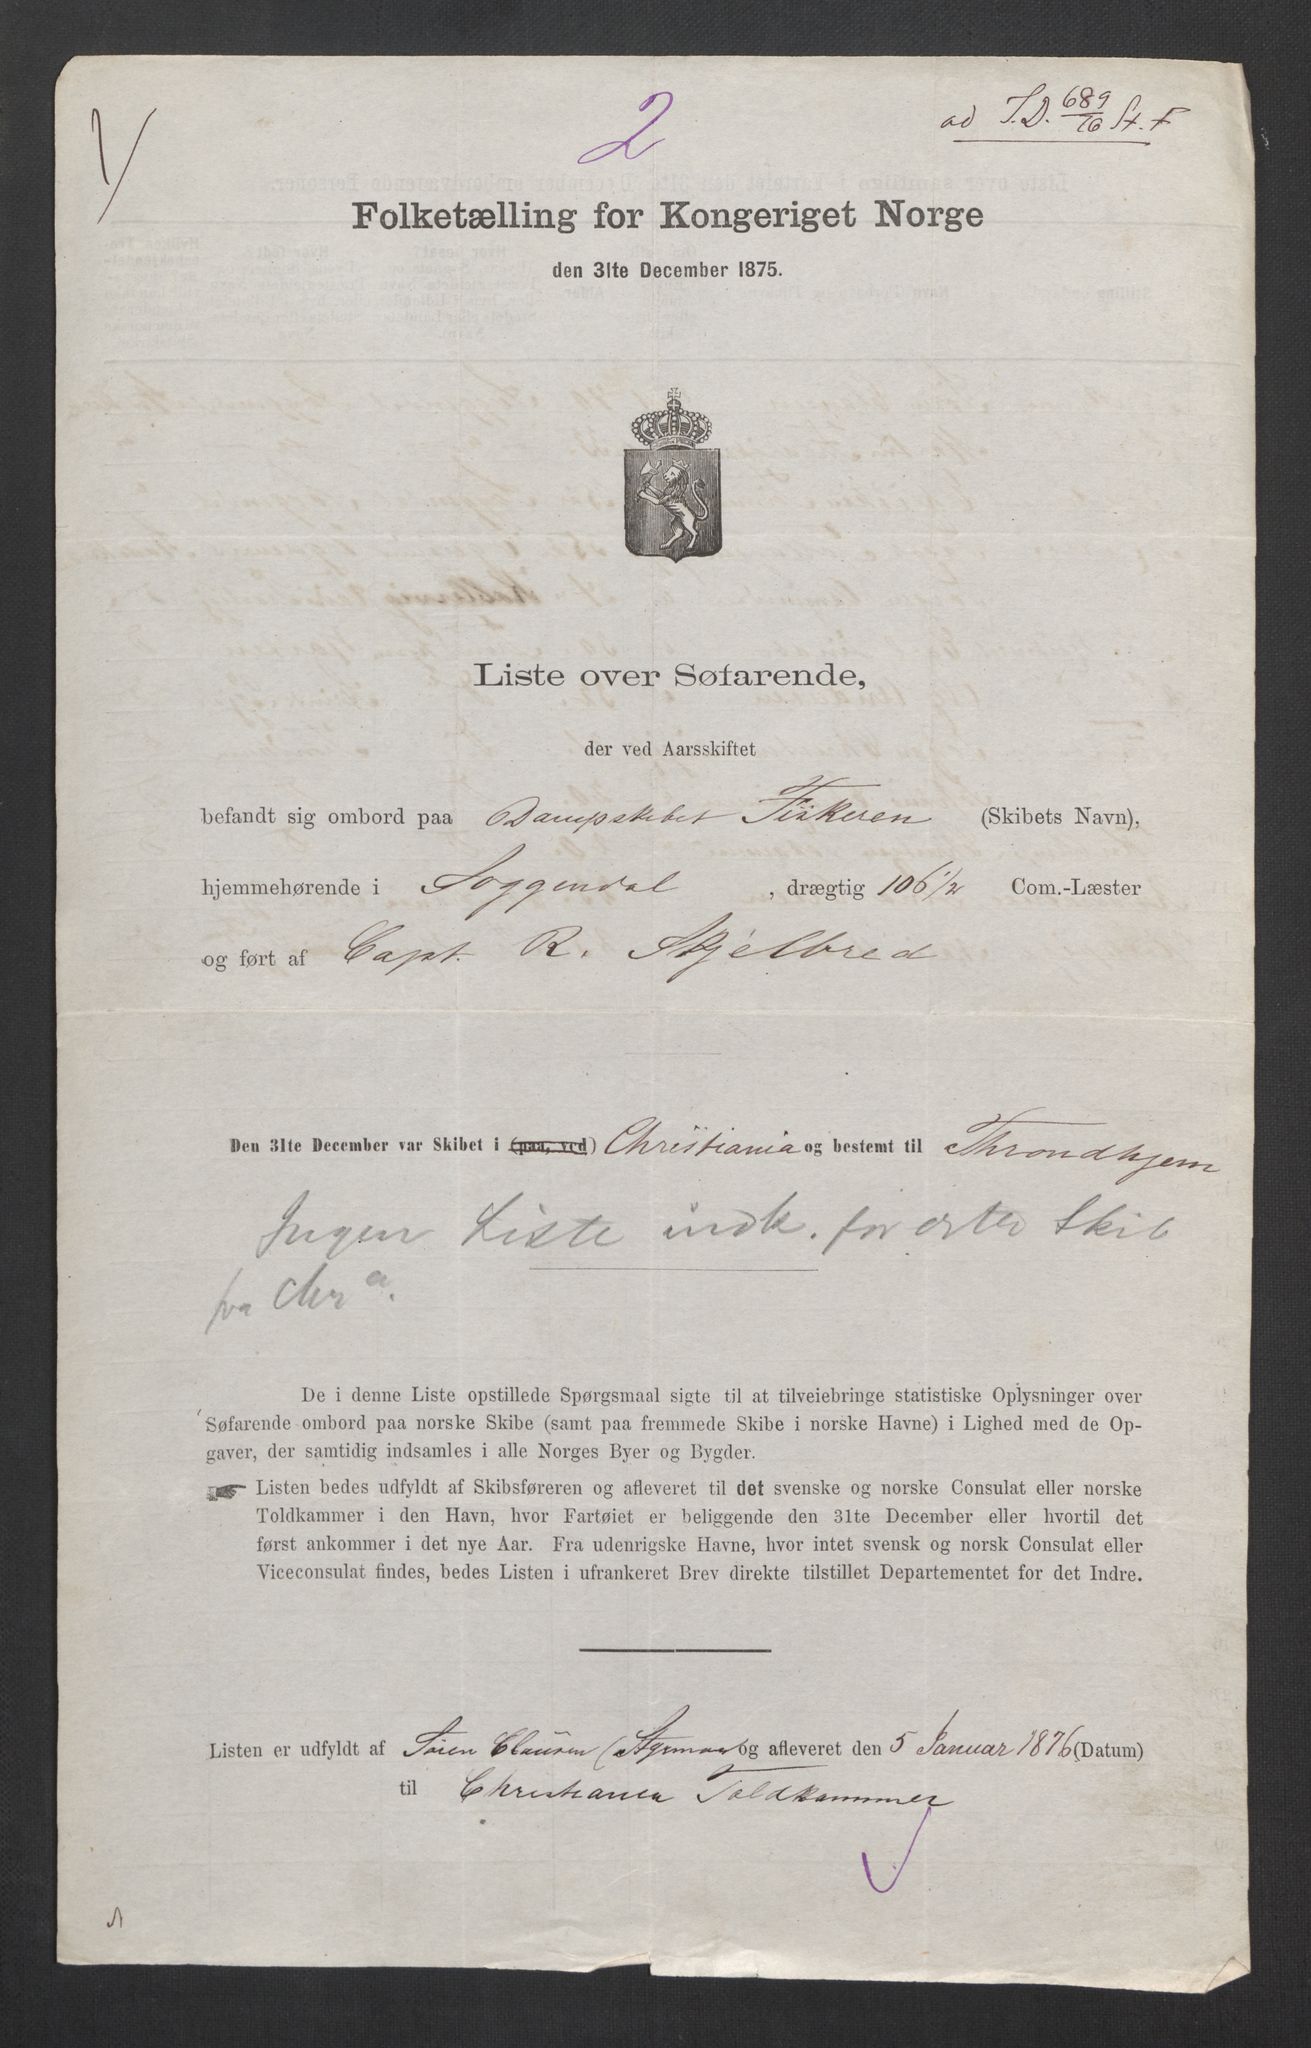 2
ad I.D. 689/76 St. F
Folketælling for Kongeriget Norge
den 31te December 1875.
Liste over Søfarende,
der ved Aarsskiftet
befandt sig ombord paa Dampskibet Fiskeren (Skibets Navn),
hjemmehørende i Soggendal, drægtig 106 1/2 Com.-Læster
og ført af Capt. R. Skjelbred
Den 31te December var Skibet i (paa, ved) Christiania og bestemt til Throndhjem
Ingen Liste indk. for dette Skib
fra Chra.
De i denne Liste opstillede Spørgsmaal sigte til at tilveiebringe statistiske Oplysninger over
Søfarende ombord paa norske Skibe (samt paa fremmede Skibe i norske Havne) i Lighed med de Op-
gaver, der samtidig indsamles i alle Norges Byer og Bygder.
Listen bedes udfyldt af Skibsføreren og afleveret til det svenske og norske Consulat eller norske
Toldkammer i den Havn, hvor Fartøiet er beliggende den 31te December eller hvortil det
først ankommer i det nye Aar. Fra udenrigske Havne, hvor intet svensk og norsk Consulat eller
Viceconsulat findes, bedes Listen i ufrankeret Brev direkte tilstillet Departementet for det Indre.
Listen er udfyldt af Sören Clausen (Styrman og afleveret den 5 Januar 1876 (Datum)
til Christiania Toldkammer